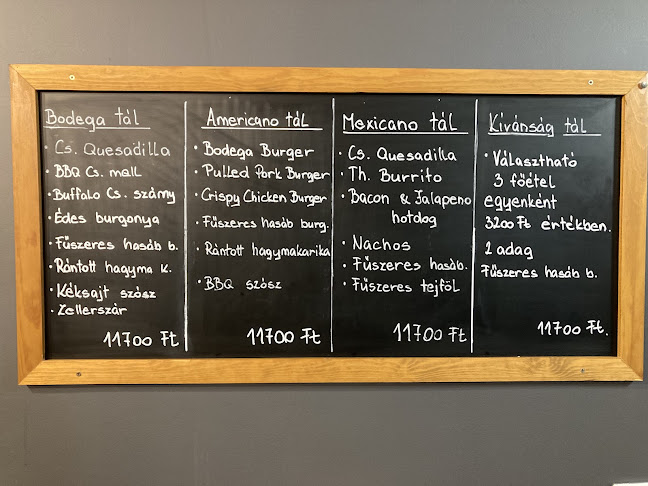 Bodega tál
• Cs. Quesadilla
• BBQ Cs. mell
• Buffalo Cs. szárny
• Édes burgonya
• Fűszeres hasáb b.
• Rántott hagyma k.
• Kéksajt szósz
• Zellerszár
11700 Ft
Americano tál
• Bodega Burger
• Pulled Pork Burger
• Crispy Chicken Burger
• Fűszeres hasáb burg.
• Rántott hagymakarika
• BBQ szósz
11700 Ft
Mexicano tál
• Cs. Quesadilla
• Th. Burrito
• Bacon & Jalapeno
hotdog
• Nachos
• Fűszeres hasáb.
• Fűszeres tejföl
11700 Ft
Kívánság tál
• Választható
3 főétel
egyenként
3200 Ft értékben.
1 adag
Fűszeres hasáb b.
11700 Ft.